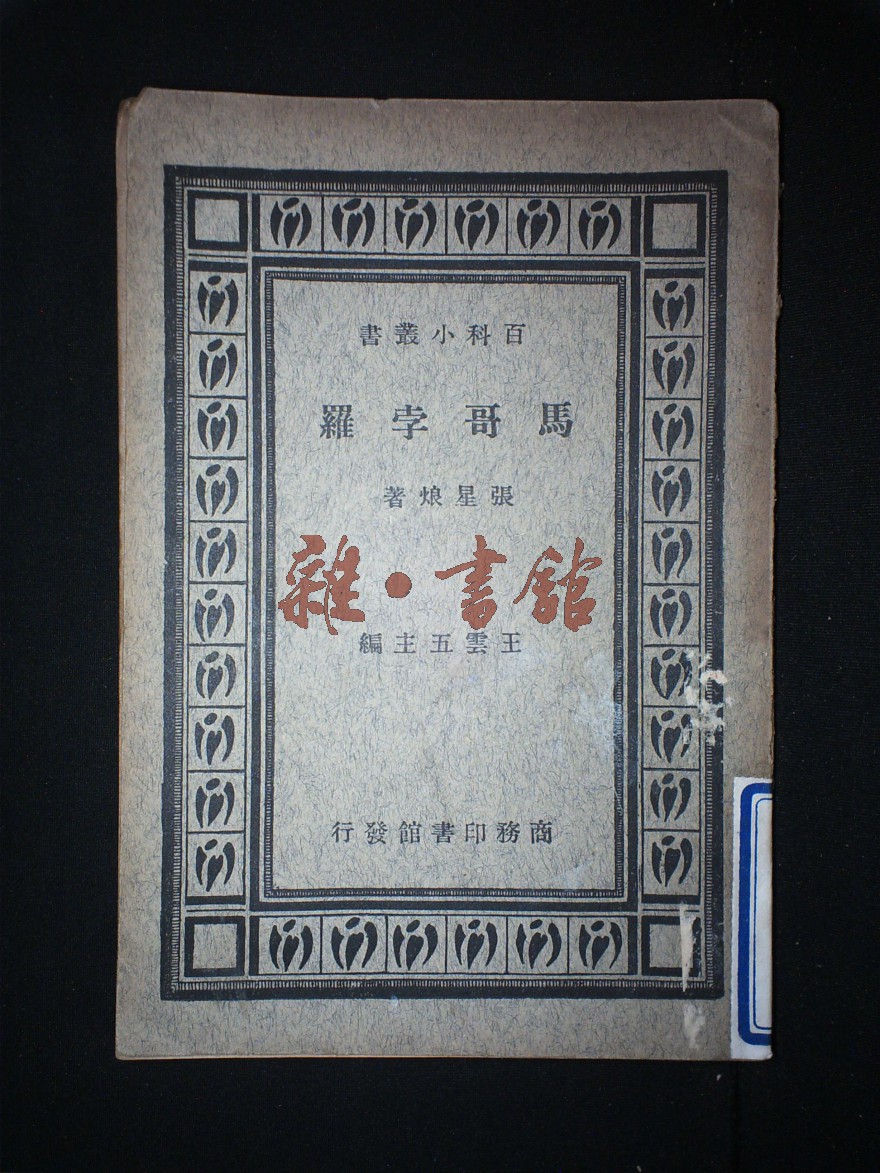 百科小叢書
馬哥孛羅
張星烺著
雜·書館
王雲五主編
商務印書館發行